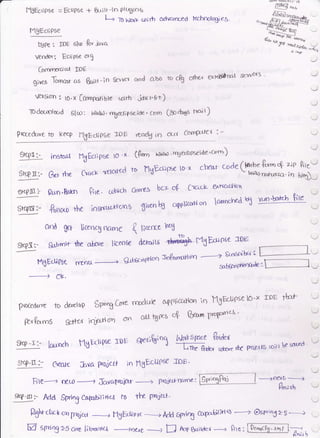 MyEclipse = Eclipse + Built-in plugins
To work with advanced technologies.
MyEclipse
type : IDE s/w for Java
vendor : Eclipse org
Commercial IDE
gives Tomcat as Built-in server and also to cfg other external servers.
version : 10.x (Compatible with jdk1.6+)
To download s/w : www.myeclipseide.com (30-days trail)
Procedure to keep MyEclipse IDE ready in our Computer :-
Step1:- install MyEclipse 10.x (from www.myeclipseide.com)
Step II:- Get the Crack related to MyEclipse 10.x cheat code (in the form of zip file
Step III:- Run-Batch file which comes bcz of Crack extraction
follow the instructions given by application launched by run-batch file
and get license name & license key
Step V:- Submit the above license details to MyEclipse IDE
MyEclipse menu → Subscription Information → Subscriber :
Subscription code :
→ Ok.
procedure to develop Spring Core module application in MyEclipse 10.x IDE that
performs setter injection on all types of Bean properties.
Step-I:- launch MyEclipse IDE specifying Workspace folder
The folder where the projects will be saved
Step-II:- Create Java project in MyEclipse IDE.
File → new → Java project → project name : SpringProj → next →
Finish
Step-III:- Add Spring Capabilities to the project.
Right click on project → MyEclipse → Add Spring capabilities → Spring 2.5 →
spring 2.5 core libraries → next → AOP Builder → File :
Finish